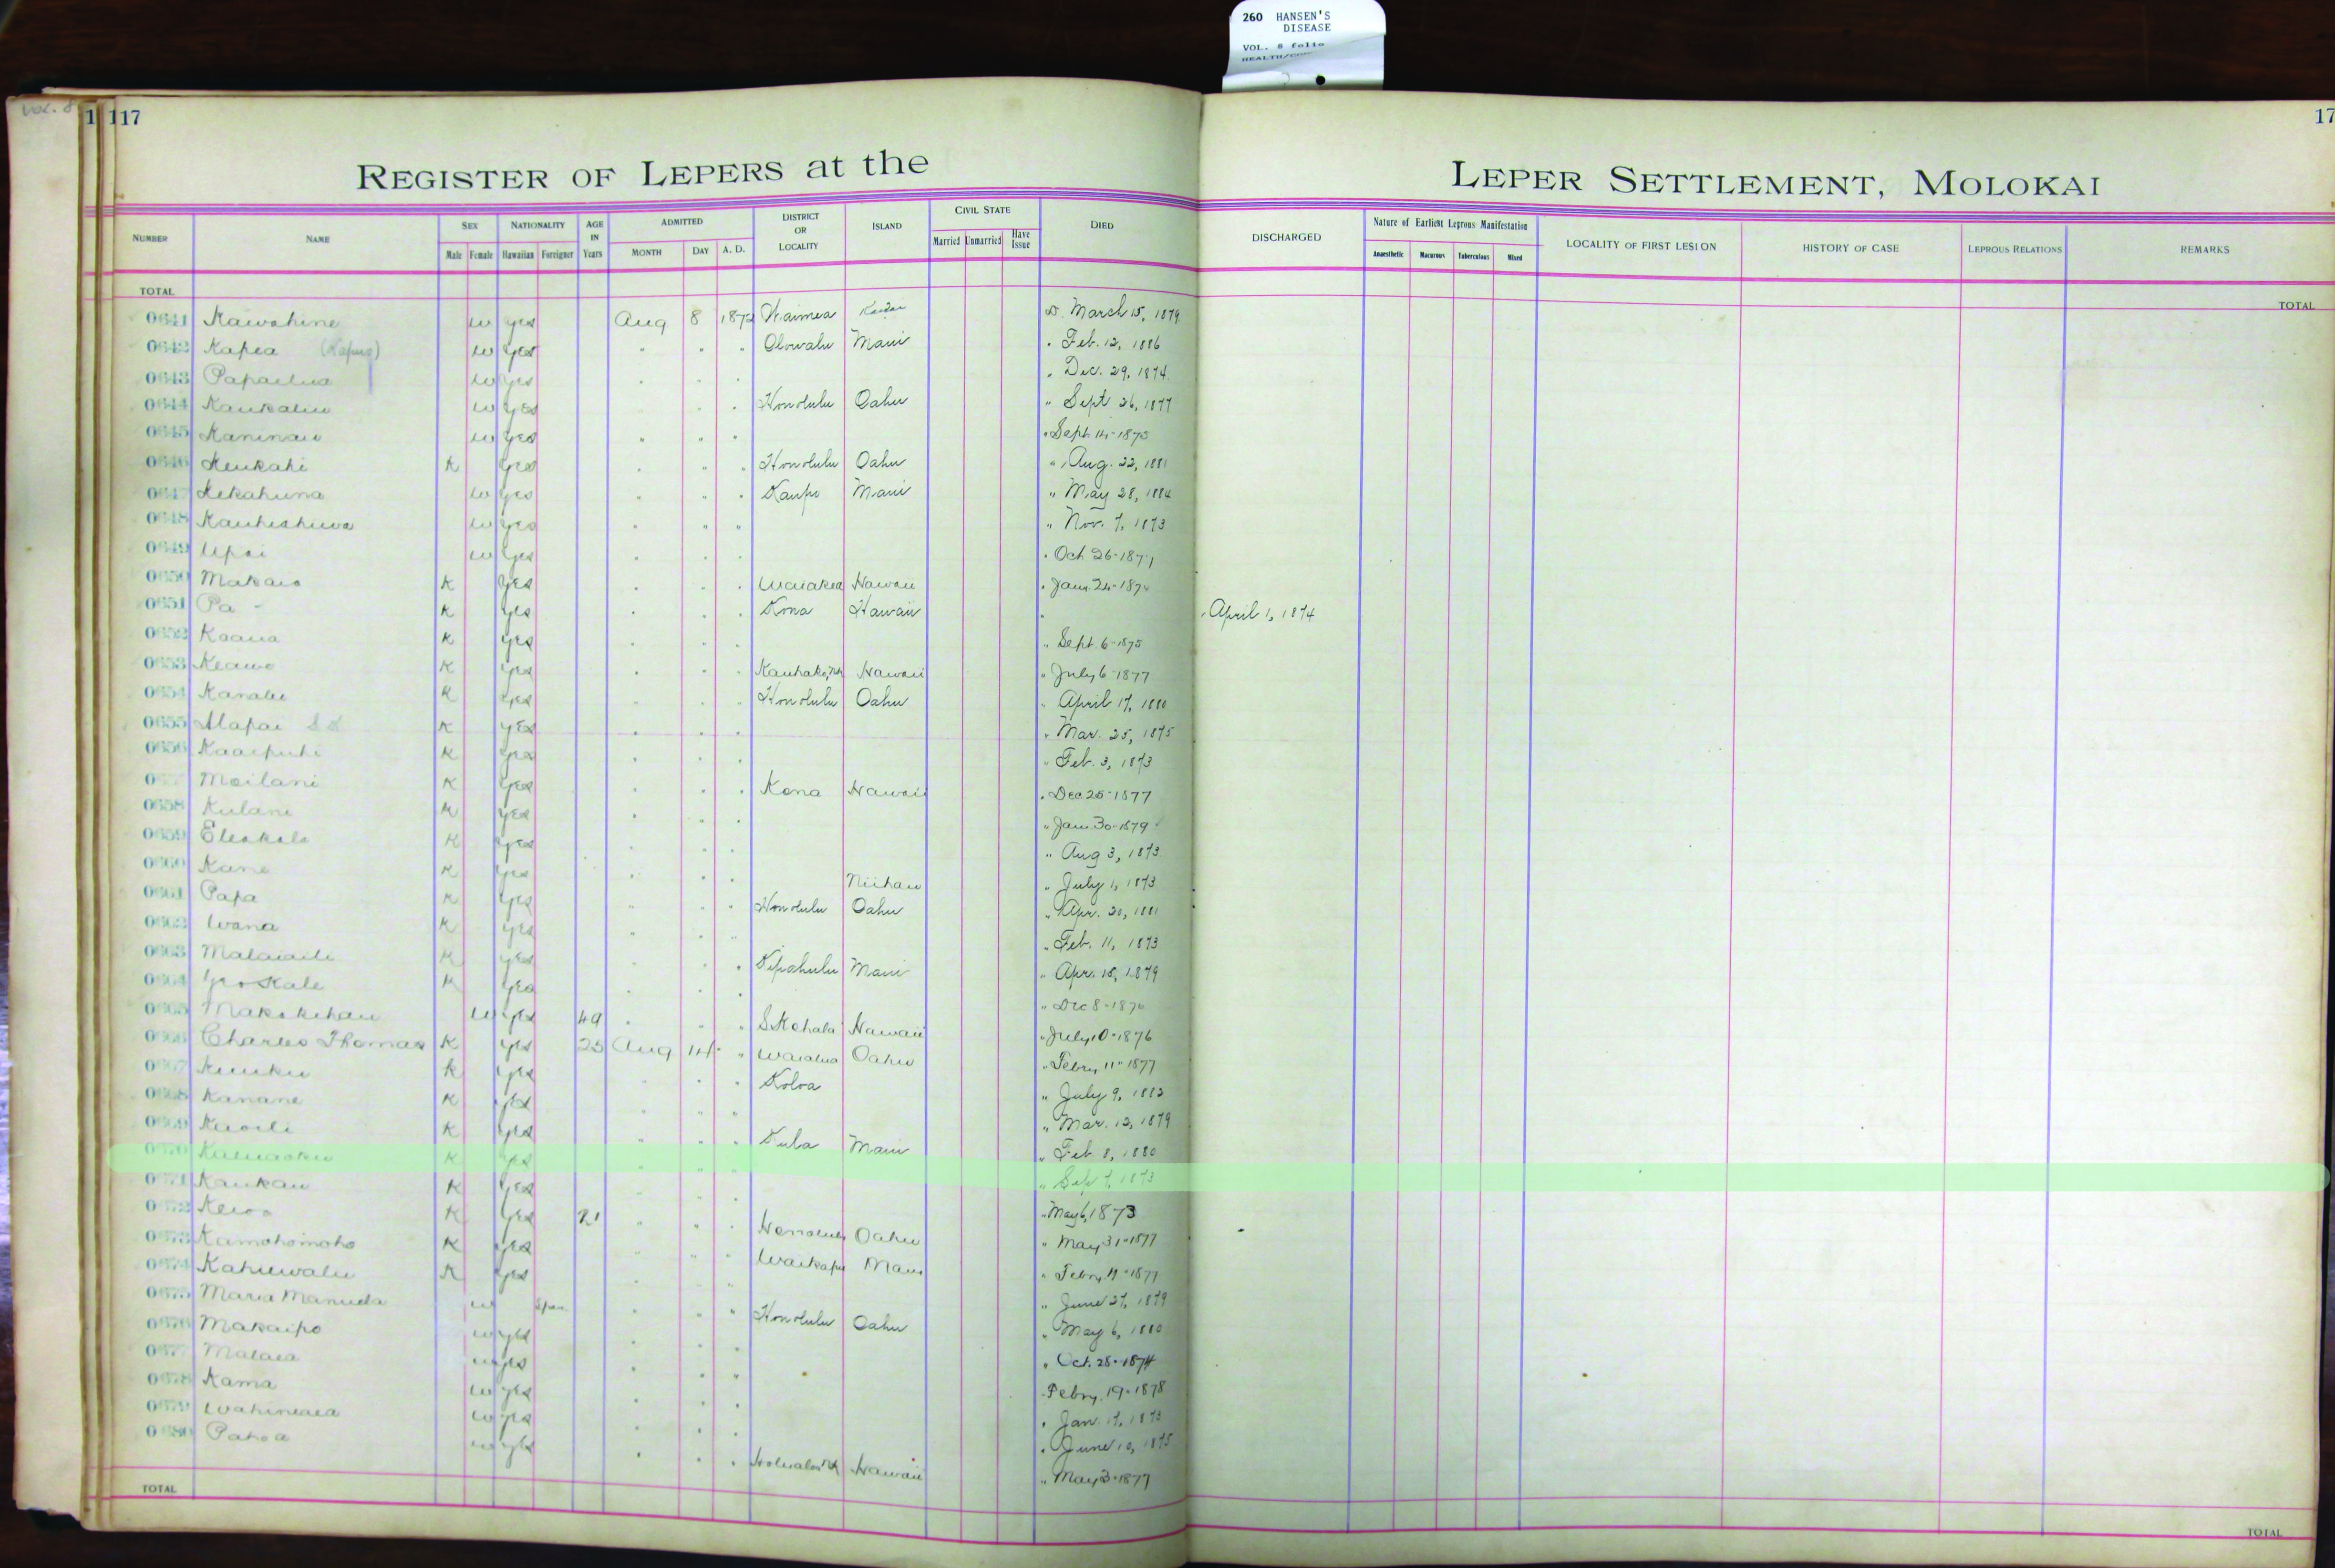 260 HANSEN'S
DISEASE
VOL. 8 folio
vol. 8
1 117
17
REGISTER OF LEPERS at the
LEPER SETTLEMENT, MOLOKAI
NUMBER NAME SEX Male Female NATIONALITY Hawaiian Foreigner AGE IN Years ADMITTED MONTH DAY A. D. DISTRICT OR LOCALITY ISLAND CIVIL STATE Married Unmarried Have Issue DIED DISCHARGED Nature of Earliest Leprous Manifestation Anaesthetic Macurous Tuberculous Mixed LOCALITY OF FIRST LESION HISTORY OF CASE LEPROUS RELATIONS REMARKS
TOTAL TOTAL
0641 Kawahine w yes Aug 8 Waimea Kauai D. March 15, 1879
0642 Kapea w yes " " " Olowalu Maui " Feb. 12, 1886
0643 w yes " " " " Dec. 29, 1874
0644 w yes " " " Honolulu Oahu " Sept 26, 1877
0645 Kaninau w yes " " " " Sept 14-1875
0646 Keukahi K yes " " " Honolulu Oahu " Aug. 22, 1881
0647 Kekahuna w yes " " " Kaupo Maui " May 28, 1884
0648 w yes " " " " Nov. 7, 1873
0649 Upai w yes " " " " Oct 26-1871
0650 Makaio K yes " " " Waiakea Hawaii " Jany 24-1874
0651 Pa - K yes " " " Kona Hawaii " " April 1, 1874
0652 Koaua K yes " " " " Sept 6-1875
0653 Keawe K yes " " " Hawaii " July 6-1877
0654 K yes " " " Honolulu Oahu " April 17, 1880
0655 Alapai K yes " " " " Mar. 25, 1875
0656 Kaaipuhi K yes " " " " Feb. 3, 1873
Moilani K yes " " " Kona Hawaii " Dec 25-1877
0658 Kulani K yes " " " " Jan. 30-1879
0659 Eleakala K yes " " " " Aug 3, 1873
0660 Kane K yes " " " Niihau " July 1, 1873
0661 Papa K yes " " " Honolulu Oahu " Apr. 20, 1881
0662 Wana K yes " " " " Feb. 11, 1873
0663 K yes " " " Kipahulu Maui " Apr. 15, 1879
0664 K yes " " " " Dec 8-1876
0665 Makakehau w yes 49 " " " S. Kohala Hawaii " July 10-1876
0666 Charles Thomas K yes 25 Aug 14 " Waialua Oahu " Febry 11-1877
0667 K yes " " " Koloa " July 9, 1882
0668 Kanane K yes " " " " Mar. 12, 1879
0669 Kuoili K yes " " " Kula Maui " Feb 8, 1880
0670 K yes " " " " Sep 7, 1873
0671 Kaukau K yes " " " " May 6, 1873
0672 K yes 21 " " " Honolulu Oahu " May 31-1877
0673 Kamohomoho K yes " " " Waikapu Maui
0674 Kahuwalu K yes " " " " June 27, 1879
0675 Maria w Span. " " " Honolulu Oahu " May 6, 1880
0676 Makaipo w yes " " " " Oct. 28-1874
0677 Malaea w yes " " " Febry. 19-1878
0678 Kama w yes " " " " Jan. 17, 1873
0679 w yes " " " " June 10, 1875
0680 Pahoa w yes " " " Hawaii " May 3-1877
TOTAL TOTAL